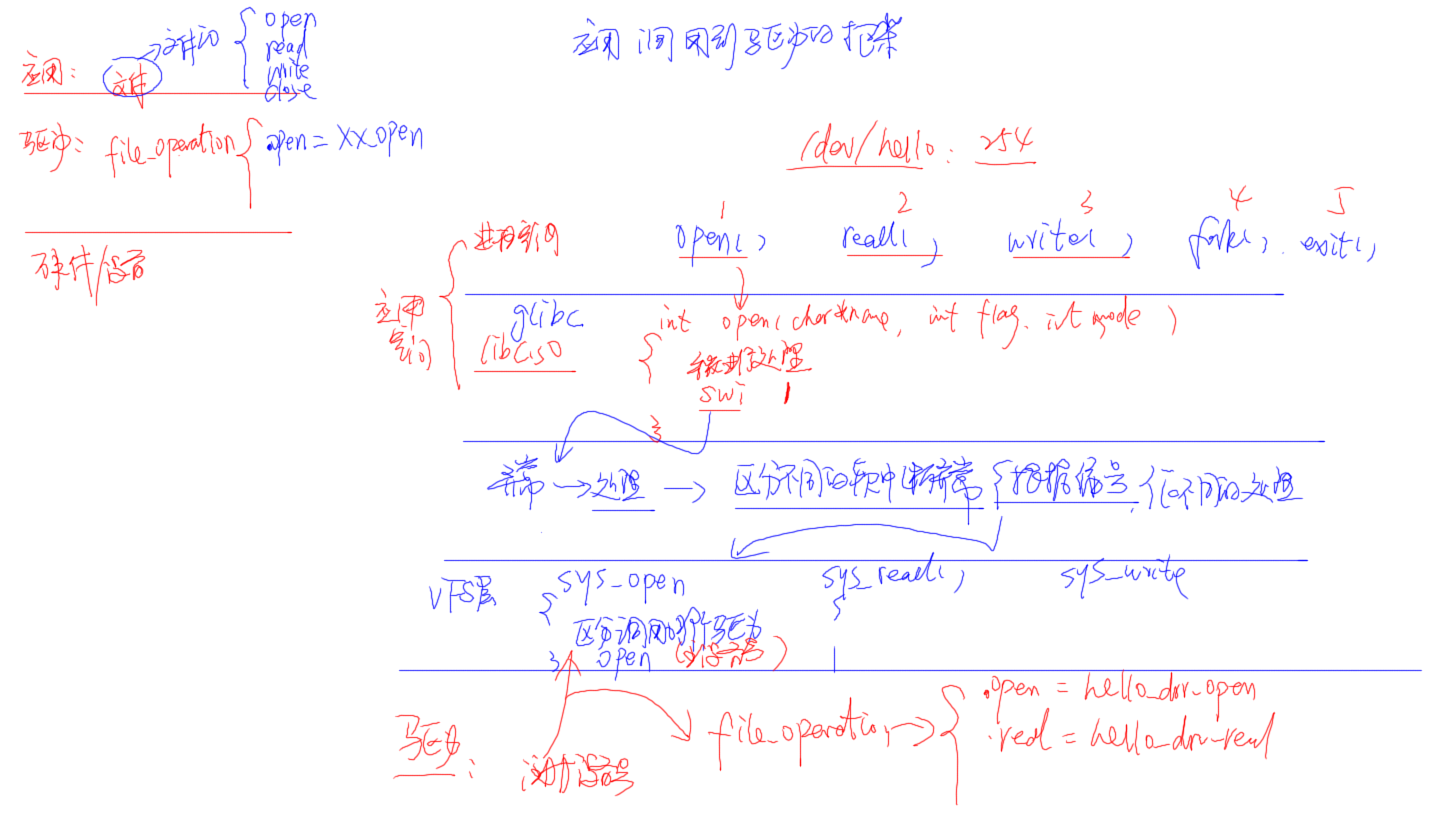 应用调用到驱动的框架
应用: 文件 → 文件IO { open
read
write
close
驱动: file_operation { .open = XX_open
硬件/设备
/dev/hello: 254
1 2 3 4 5
进程空间 open(); read(); write(); fork(); exit();
应用空间
glibc int open(char *name, int flag, int mode)
libc.so { 处理
swi 1
}
异常 → 处理 → 区分不同的软中断异常 { 根据编号, 做不同的处理
VFS层 sys_open sys_read(); sys_write
{ {
区分调用的哪个驱动
} open (设备号) }
驱动: 设备号 file_operation → { .open = hello_drv_open
.read = hello_drv_read